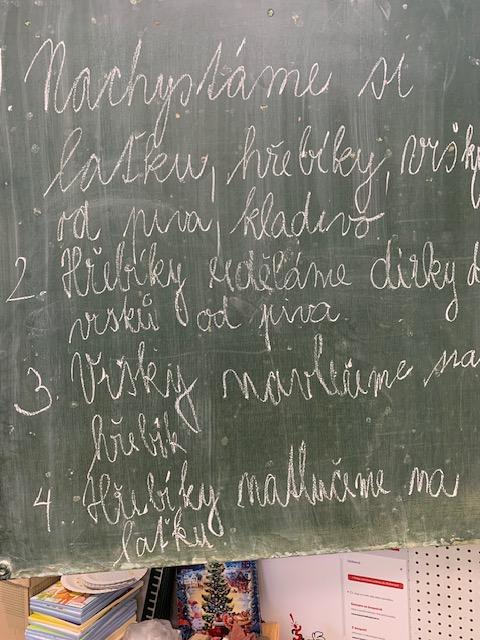 Nachystáme si
laťku, hřebíky, vršky
od piva, kladivo
2. Hřebíky uděláme dirky d
vrsků od piva.
3. Vršky navlečeme na
hřebík
4. Hřebíky natlučeme na
laťku.